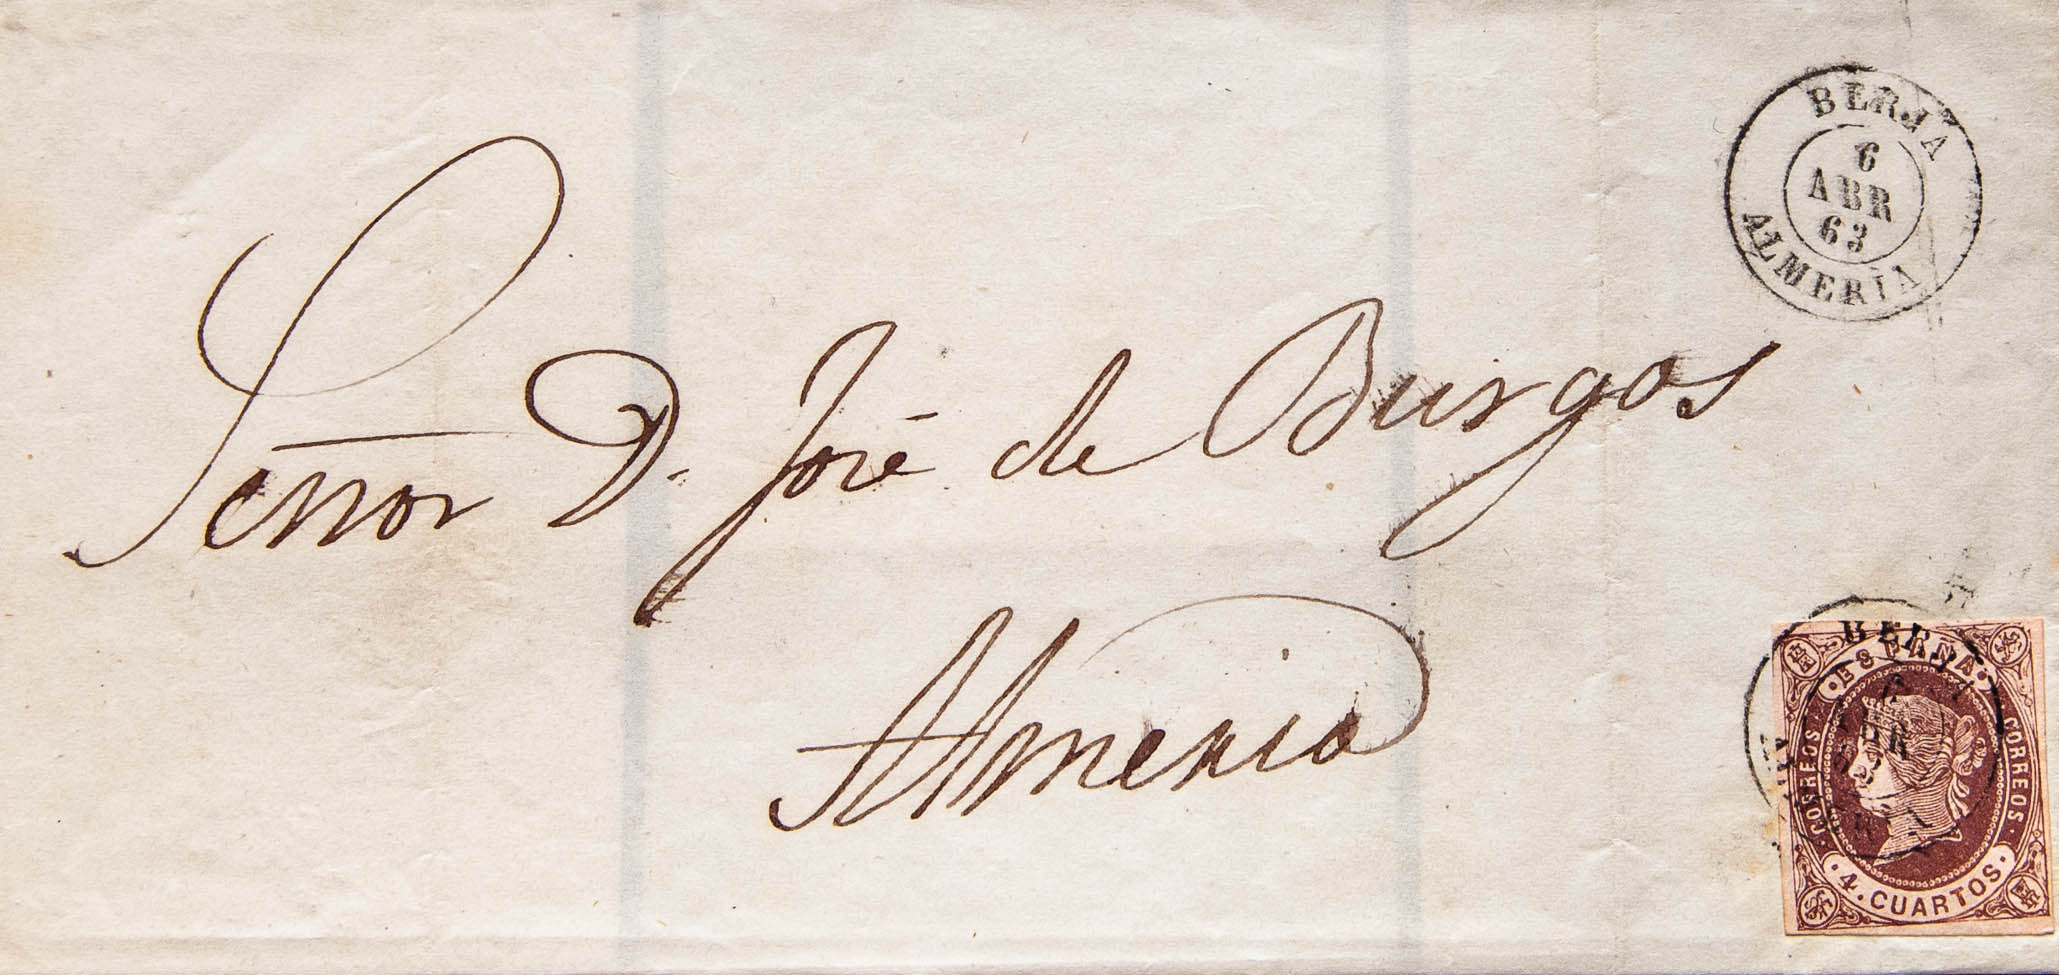 BERJA
6
ABR
63
ALMERÌA
Señor D. José de Burgos
Almeria
BERJA
6
ABR
63
ESPAÑA
CORREOS
CORREOS
4 CUARTOS